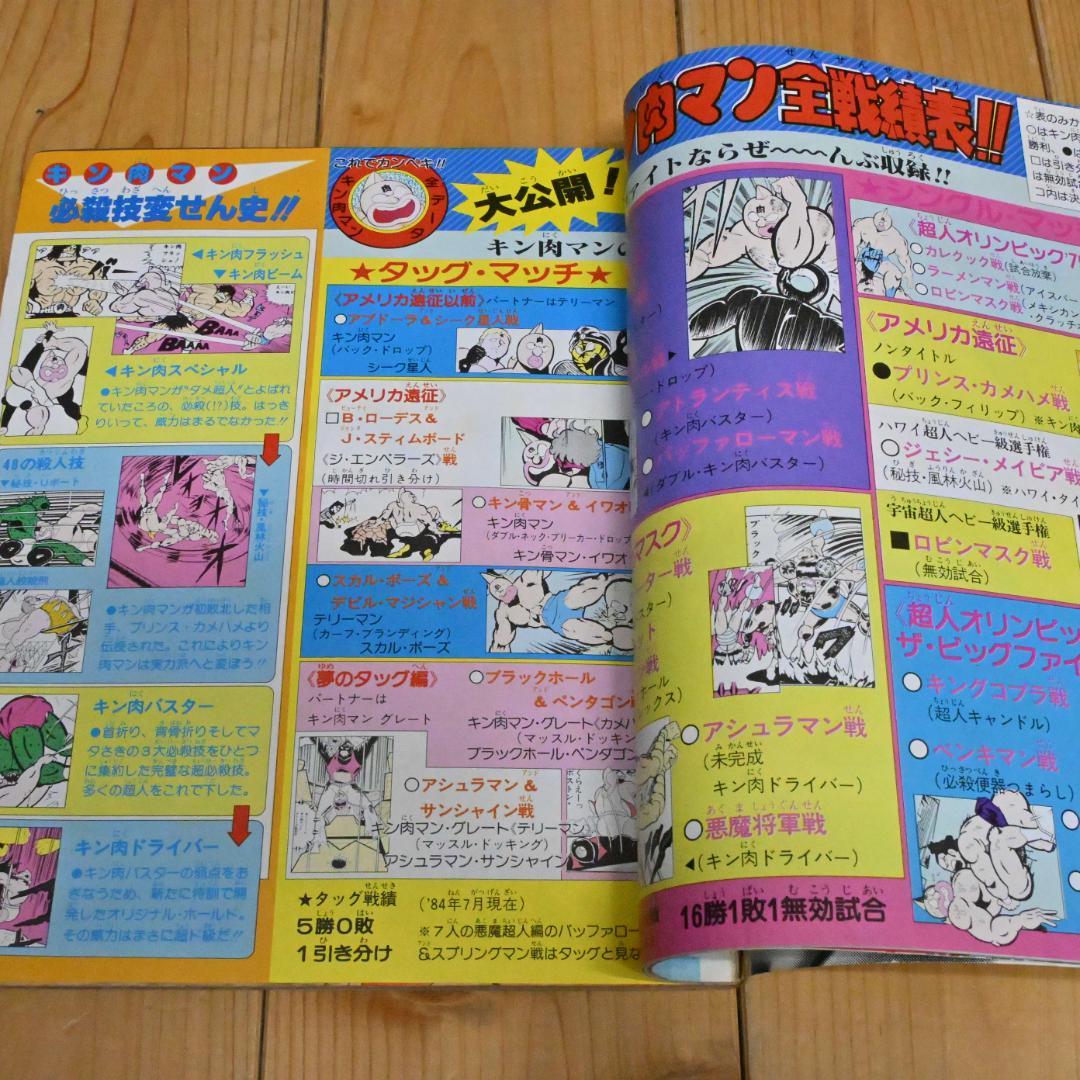 キン肉マン
必殺技変せん史!!
◀キン肉フラッシュ
▼キン肉ビーム
◀キン肉スペシャル
●キン肉マンが"ダメ超人"とよばれ
ていたころの、必殺(!?)技。はっき
りいって、威力はまるでなかった!!
48の殺人技
▼秘技・リポート
▼秘技・風林火山
●キン肉マンが初敗北した相
手、プリンス・カメハメより
伝授された。これによりキン
肉マンは実力派へと変ぼう!!
キン肉バスター
●首折り、背骨折りそしてマ
タさきの3大必殺技をひとつ
に集約した完璧な超必殺技。
多くの超人をこれで下した。
キン肉ドライバー
●キン肉バスターの弱点をお
ぎなうため、新たに特訓で開
発したオリジナル・ホールド。
その威力はまさに超ド級だ!!
これでカンペキ!!
キン肉マン
全データ
大公開!
キン肉マンの
★タッグ・マッチ★
《アメリカ遠征以前》パートナーはテリーマン
○アブドーラ&シーク星人戦
キン肉マン
(バック・ドロップ)
シーク星人
《アメリカ遠征》
□B・ローデス&
J・スティムボード
《ジ・エンペラーズ》戦
(時間切れ引き分け)
○キン骨マン&イワオ
キン肉マン
(ダブル・ネック・ブリーカー・ドロップ
キン骨マン・イワオ
○スカル・ボーズ&
デビル・マジシャン戦
テリーマン
(カーフ・ブランディング)
スカル・ボーズ
《夢のタッグ編》
パートナーは
キン肉マン グレート
○ブラックホール
&ペンタゴン
キン肉マン・グレート《カメハ
(マッスル・ドッキン
ブラックホール・ペンタゴン
○アシュラマン&
サンシャイン戦
キン肉マン・グレート《テリーマン
(マッスル・ドッキング)
アシュラマン・サンシャイン
★タッグ戦績
('84年7月現在)
5勝0敗
1引き分け
※7人の悪魔超人編のバッファロー
&スプリングマン戦はタッグと見な
肉マン全戦績表!!
ァイトならぜ〜〜〜んぶ収録!!
☆表のみか
○はキン肉
勝利、●は
□は引き分
は無効試合
コ内は決
ドロップ)
トランティス戦
(キン肉バスター)
バッファローマン戦
(ダブル・キン肉バスター)
マスク》
ター戦
○アシュラマン戦
(未完成
キン肉ドライバー)
○悪魔将軍戦
◀(キン肉ドライバー)
16勝1敗1無効試合
シングル・マッ
《超人オリンピック'79
○カレクック戦(試合放棄)
○ラーメンマン戦(アイスバー
○ロビンマスク戦(メキシカン
《アメリカ遠征》
ノンタイトル
●プリンス・カメハメ戦
(バック・フィリップ)
ハワイ超人ヘビー級選手権
○ジェシー・メイビア戦
(秘技・風林火山)
※ハワイ・タイ
宇宙超人ヘビー級選手権
■ロビンマスク戦
(無効試合)
《超人オリンピッ
ザ・ビッグファイ
○キングコブラ戦
(超人キャンドル)
○ベンキマン戦
(必殺便器つまらし)